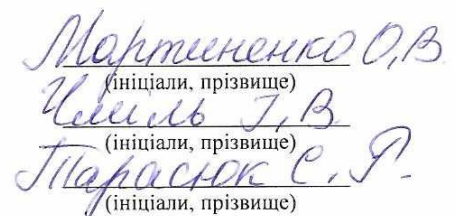 Мартиненко О,В
(ініціали, прізвище)
Чмиль І,В
(ініціали, прізвище)
Тарасюк С. Г.
(ініціали, прізвище)